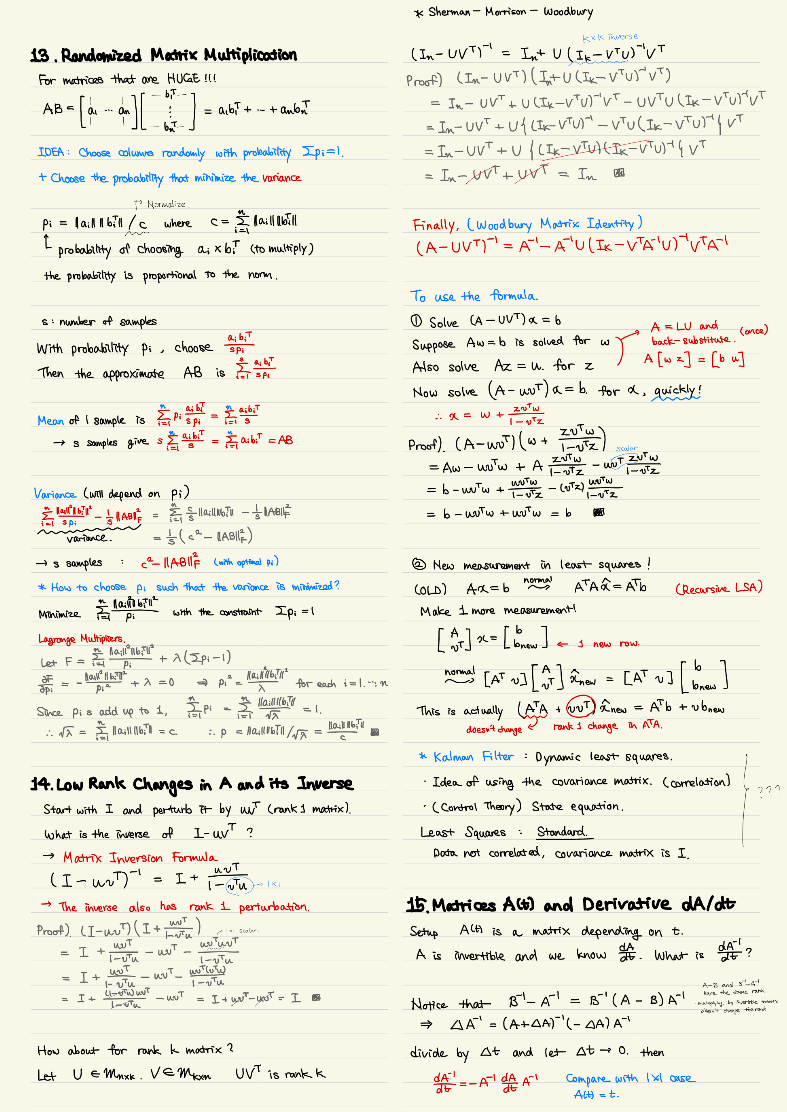 13. Randomized Matrix Multiplication
For matrices that are HUGE !!!
AB = [a₁ ··· aₙ] [b₁ᵀ ⋮ bₙᵀ] = a₁b₁ᵀ + ··· + aₙbₙᵀ
IDEA : Choose columns randomly with probability Σpᵢ = 1.
+ Choose the probability that minimize the variance
↱ Normalize
pᵢ = ‖aᵢ‖ ‖bᵢᵀ‖ / c where c = Σⁿᵢ₌₁ ‖aᵢ‖‖bᵢᵀ‖
probability of choosing aᵢ × bᵢᵀ (to multiply)
the probability is proportional to the norm.
s : number of samples
With probability pᵢ, choose aᵢbᵢᵀ / spᵢ
Then the approximate AB is Σˢᵢ₌₁ aᵢbᵢᵀ / spᵢ
Mean of 1 sample is Σⁿᵢ₌₁ pᵢ aᵢbᵢᵀ / spᵢ = Σⁿᵢ₌₁ aᵢbᵢᵀ / s
→ s samples give s Σⁿᵢ₌₁ aᵢbᵢᵀ / s = Σⁿᵢ₌₁ aᵢbᵢᵀ = AB
Variance (will depend on pᵢ)
Σⁿᵢ₌₁ ‖aᵢ‖²‖bᵢᵀ‖² / spᵢ − 1/s ‖AB‖²_F = Σⁿᵢ₌₁ c/s ‖aᵢ‖‖bᵢᵀ‖ − 1/s ‖AB‖²_F
variance. = 1/s (c² − ‖AB‖²_F)
→ s samples : c² − ‖AB‖²_F (with optimal pᵢ)
* How to choose pᵢ such that the variance is minimized?
Minimize Σⁿᵢ₌₁ ‖aᵢ‖²‖bᵢᵀ‖² / pᵢ with the constraint Σpᵢ = 1
Lagrange Multipliers.
Let F = Σⁿᵢ₌₁ ‖aᵢ‖²‖bᵢᵀ‖² / pᵢ + λ (Σpᵢ − 1)
∂F/∂pᵢ = − ‖aᵢ‖²‖bᵢᵀ‖² / pᵢ² + λ = 0 ⇒ pᵢ² = ‖aᵢ‖²‖bᵢᵀ‖² / λ for each i = 1, ··· , n
Since pᵢs add up to 1, Σⁿᵢ₌₁ pᵢ = Σⁿᵢ₌₁ ‖aᵢ‖‖bᵢᵀ‖ / √λ = 1.
∴ √λ = Σⁿᵢ₌₁ ‖aᵢ‖‖bᵢᵀ‖ = c ∴ p = ‖aᵢ‖‖bᵢᵀ‖/√λ = ‖aᵢ‖‖bᵢᵀ‖ / c
14. Low Rank Changes in A and its Inverse
Start with I and perturb it by uvᵀ (rank 1 matrix).
What is the inverse of I − uvᵀ ?
→ Matrix Inversion Formula
(I − uvᵀ)⁻¹ = I + uvᵀ / (1 − vᵀu) → 1×1
→ The inverse also has rank 1 perturbation.
Proof). (I − uvᵀ)(I + uvᵀ / (1 − vᵀu)) scalar
= I + uvᵀ / (1 − vᵀu) − uvᵀ − uvᵀuvᵀ / (1 − vᵀu)
= I + uvᵀ / (1 − vᵀu) − uvᵀ − uvᵀ(vᵀu) / (1 − vᵀu)
= I + (1 − vᵀu)uvᵀ / (1 − vᵀu) − uvᵀ = I + uvᵀ − uvᵀ = I
How about for rank k matrix ?
Let U ∈ Mₙₓₖ . V ∈ Mₖₓₙ UVᵀ is rank k
* Sherman – Morrison – Woodbury
k×k inverse
(Iₙ − UVᵀ)⁻¹ = Iₙ + U (Iₖ − VᵀU)⁻¹ Vᵀ
Proof) (Iₙ − UVᵀ)(Iₙ + U (Iₖ − VᵀU)⁻¹Vᵀ)
= Iₙ − UVᵀ + U (Iₖ − VᵀU)⁻¹Vᵀ − UVᵀU (Iₖ − VᵀU)⁻¹Vᵀ
= Iₙ − UVᵀ + U {(Iₖ − VᵀU)⁻¹ − VᵀU (Iₖ − VᵀU)⁻¹} Vᵀ
= Iₙ − UVᵀ + U {(Iₖ − VᵀU)(Iₖ − VᵀU)⁻¹} Vᵀ
= Iₙ − UVᵀ + UVᵀ = Iₙ
Finally, (Woodbury Matrix Identity)
(A − UVᵀ)⁻¹ = A⁻¹ − A⁻¹U (Iₖ − VᵀA⁻¹U)⁻¹ VᵀA⁻¹
To use the formula.
① Solve (A − UVᵀ)x = b
Suppose Aw = b is solved for w
Also solve Az = u. for z
A = LU and (once)
back-substitute.
A [w z] = [b u]
Now solve (A − uvᵀ)x = b. for x, quickly!
∴ x = w + zvᵀw / (1 − vᵀz)
Proof). (A − uvᵀ)(w + zvᵀw / (1 − vᵀz))
scalar
= Aw − uvᵀw + A zvᵀw / (1 − vᵀz) − uvᵀ zvᵀw / (1 − vᵀz)
= b − uvᵀw + uvᵀw / (1 − vᵀz) − (vᵀz) uvᵀw / (1 − vᵀz)
= b − uvᵀw + uvᵀw = b
② New measurement in least squares !
(OLD) Ax = b normal AᵀAx̂ = Aᵀb (Recursive LSA)
Make 1 more measurement!
[A vᵀ] x = [b b_new] ← 1 new row.
normal [Aᵀ v] [A vᵀ] x̂_new = [Aᵀ v] [b b_new]
This is actually (AᵀA + vvᵀ) x̂_new = Aᵀb + vb_new
doesn't change rank 1 change in AᵀA.
* Kalman Filter : Dynamic least squares.
· Idea of using the covariance matrix. (correlation)
· (Control Theory) State equation.
???
Least Squares : Standard.
Data not correlated, covariance matrix is I.
15. Matrices A(t) and Derivative dA/dt
Setup A(t) is a matrix depending on t.
A is invertible and we know dA/dt. What is dA⁻¹/dt ?
A−B and B⁻¹−A⁻¹
have the same rank
Notice that B⁻¹ − A⁻¹ = B⁻¹ (A − B) A⁻¹
⇒ ΔA⁻¹ = (A + ΔA)⁻¹ (−ΔA) A⁻¹
divide by Δt and let Δt → 0. then
dA⁻¹/dt = −A⁻¹ dA/dt A⁻¹ Compare with 1×1 case
A(t) = t.